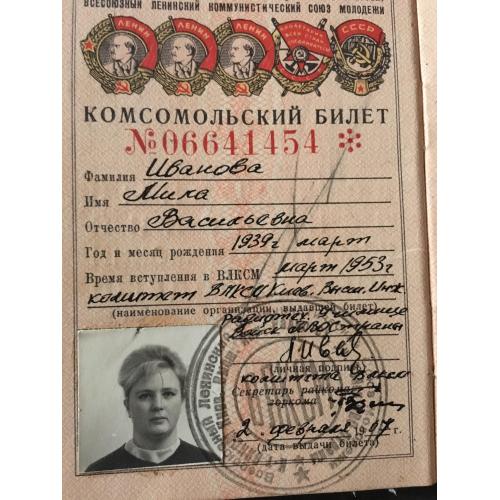 ВСЕСОЮЗНЫЙ ЛЕНИНСКИЙ КОММУНИСТИЧЕСКИЙ СОЮЗ МОЛОДЕЖИ
ЛЕНИН ЛЕНИН ЛЕНИН СССР
КОМСОМОЛЬСКИЙ БИЛЕТ
№06641454
Фамилия Иванова
Имя Мила
Отчество Васильевна
Год и месяц рождения 1939г март
Время вступления в ВЛКСМ март 1953г
комитет ВЛКСМ Киев. Высш. Инж
(наименование организации, выдавшей билет)
радиотех. Училище
Войск ПВО Страны
(личная подпись)
комитета ВЛКСМ
Секретарь райкома
горкома
2. февраля 1967 г.
(дата выдачи билета)